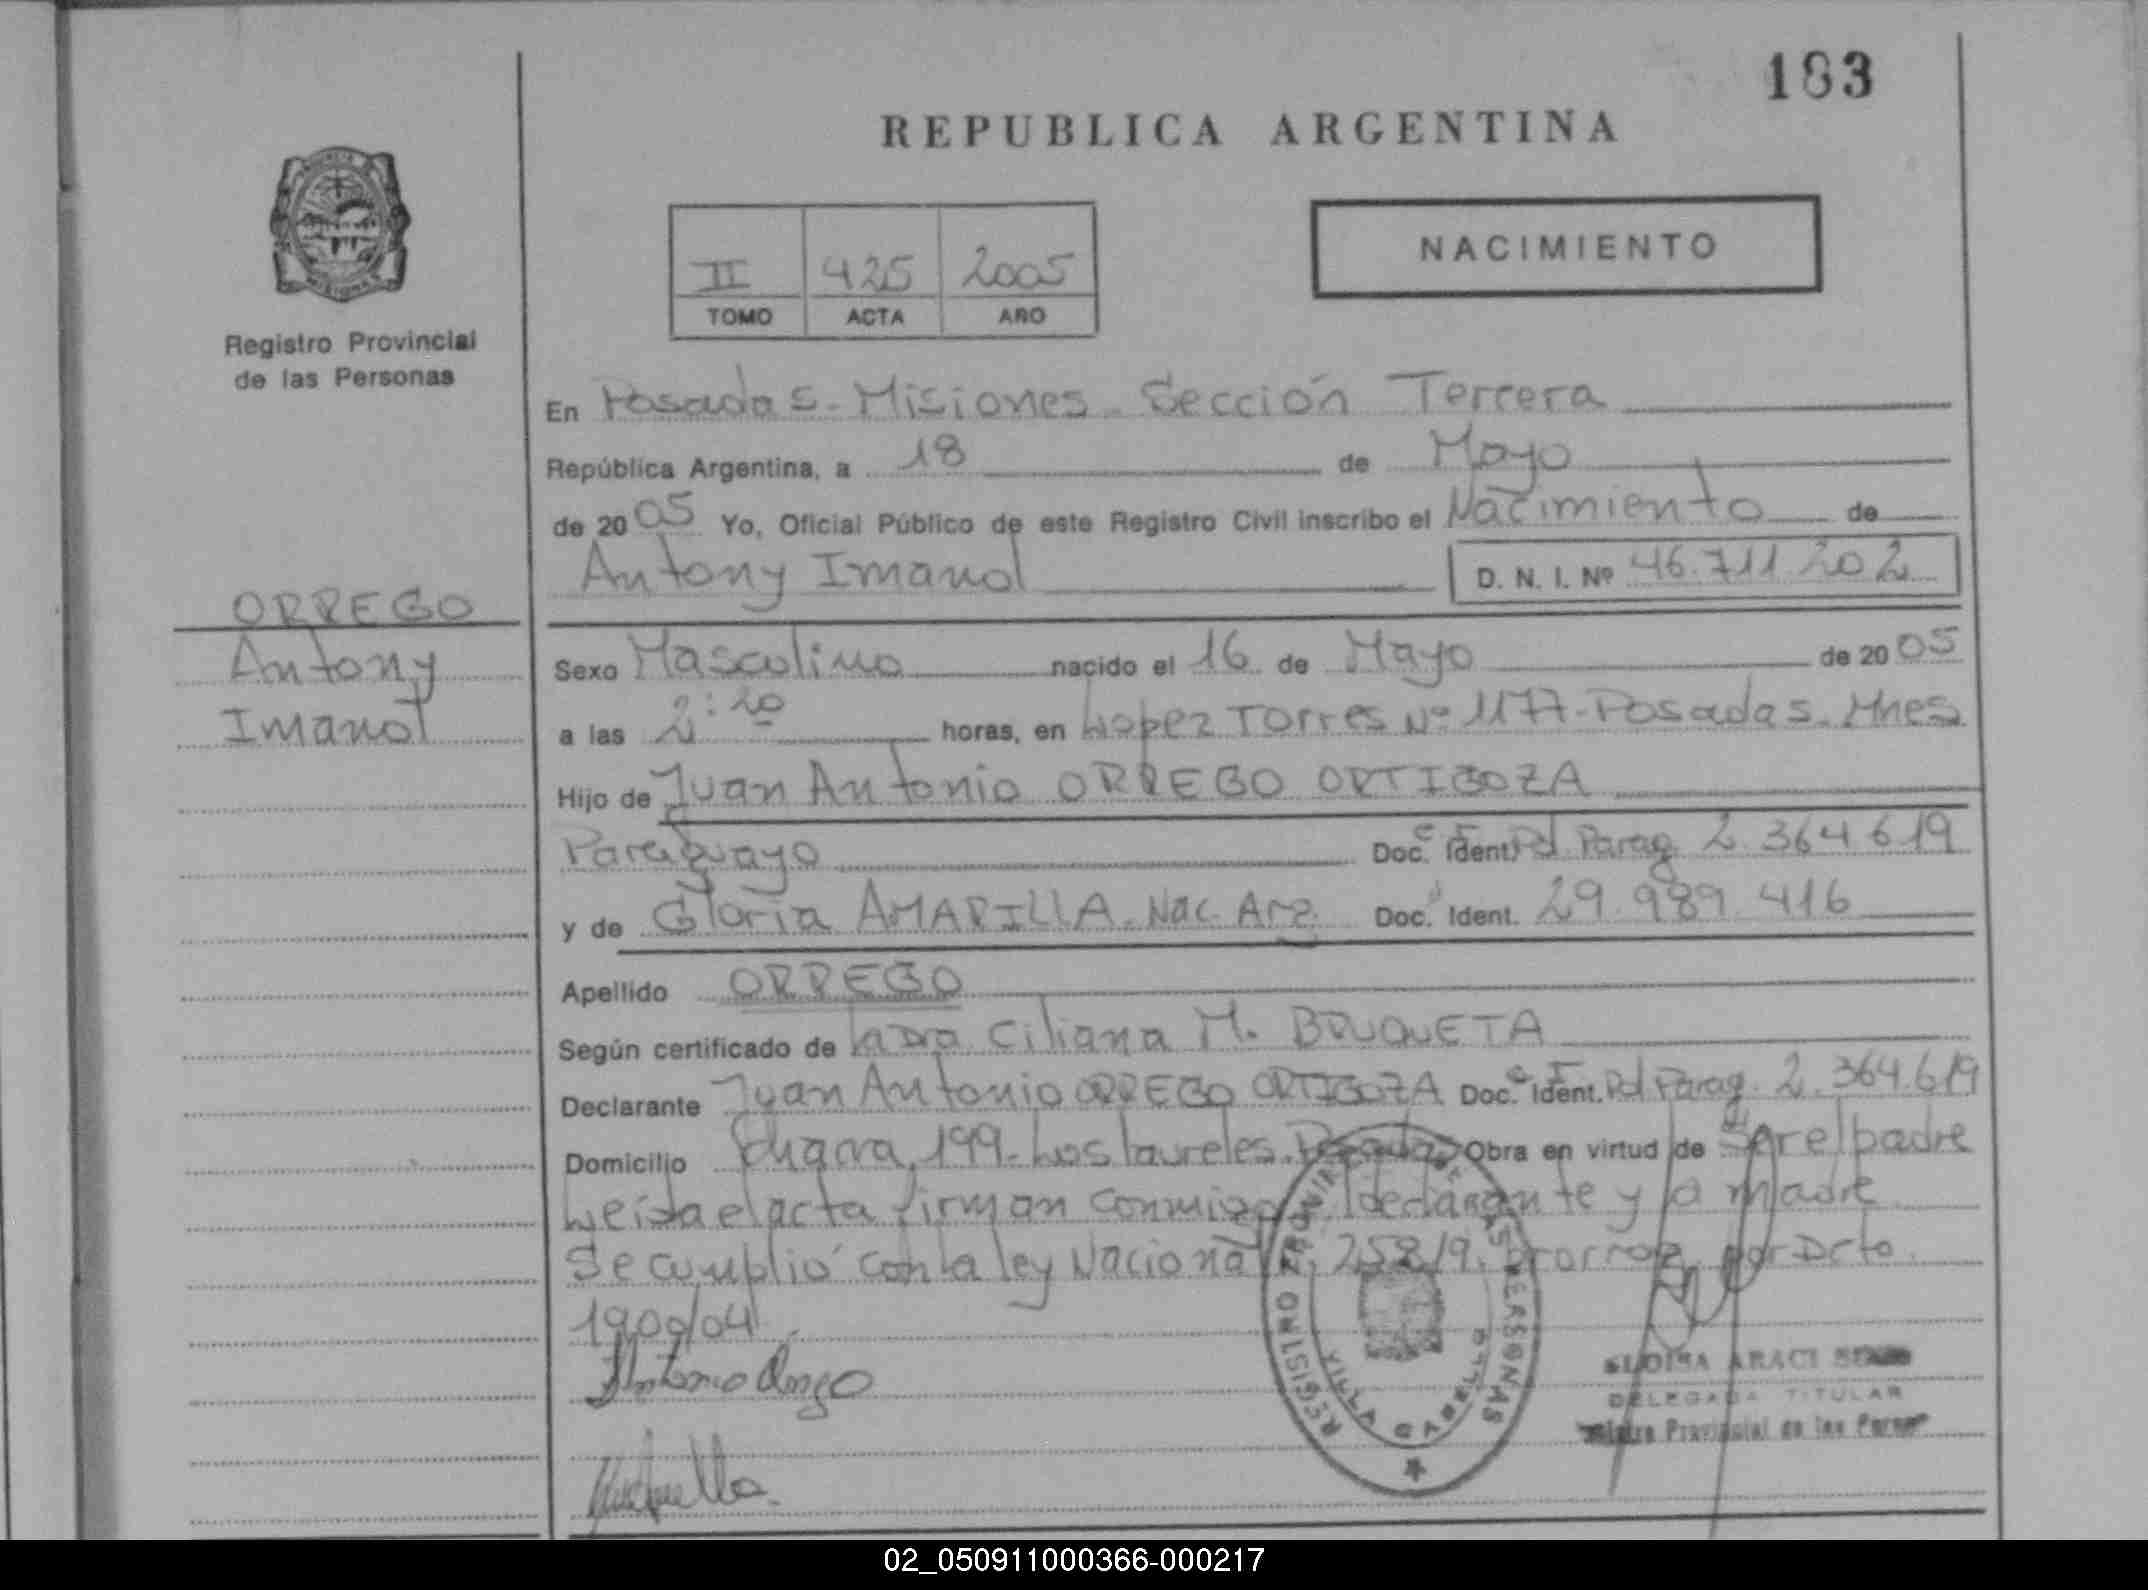 183
REPUBLICA ARGENTINA
NACIMIENTO
II 425 2005
TOMO ACTA AÑO
Registro Provincial
de las Personas
En Posadas - Misiones - Sección Tercera
República Argentina, a 18 de Mayo
de 2005 Yo, Oficial Público de este Registro Civil inscribo el Nacimiento de
Antony Imanol D. N. I. Nº 46.711.202
ORREGO
Antony
Imanol
Sexo Masculino nacido el 16 de Mayo de 2005
a las 2:20 horas, en Lopez Torres Nº 1177 - Posadas - Mnes
Hijo de Juan Antonio ORREGO ORTIGOZA
Paraguayo Doc. Ident. Pol. Parag. 2.364.619
y de Gloria AMARILLA. Nac. Arg. Doc. Ident. 29.989.416
Apellido ORREGO
Según certificado de la Dra Ciliana M. BRUQUETA
Declarante Juan Antonio ORREGO ORTIGOZA Doc. Ident. Pol Parag. 2.364.619
Domicilio Chacra 199 - Los laureles. Posadas Obra en virtud de Ser el padre
Leída el acta firman conmigo el declarante y la madre
Se cumplió con la ley Nacional 25819. prorrog. por Dcto.
1900/04
Antonio Orrego
REGISTRO PROVINCIAL DE LAS PERSONAS
VILLA CABELLO
ELOISA ARACI
DELEGADA TITULAR
Registro Provincial de las Personas
02_050911000366-000217